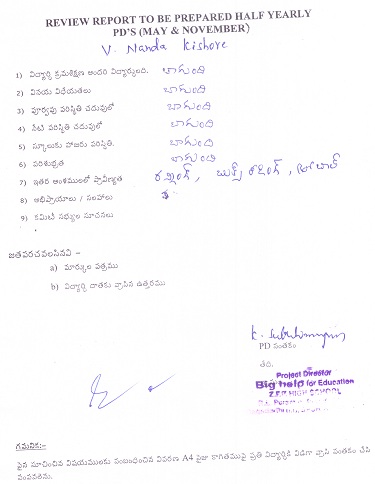 REVIEW REPORT TO BE PREPARED HALF YEARLY
PD'S (MAY & NOVEMBER)
V. Nanda Kishore
1) విద్యార్థి క్రమశిక్షణ అందరి విద్యార్థులది. బాగుంది
2) వినయ విధేయతలు బాగుంది
3) పూర్వపు పరిస్థితి చదువులో బాగుంది
4) నేటి పరిస్థితి చదువులో బాగుంది
5) స్కూలుకు హాజరు పరిస్థితి. బాగుంది
6) పరిశుభ్రత బాగుంది
7) ఇతర అంశములలో ప్రావీణ్యత
8) అభిప్రాయాలు / సలహాలు
9) కమిటీ సభ్యుల సూచనలు
జతపరచవలసినవి :-
a) మార్కుల పత్రము
b) విద్యార్థి దాతకు వ్రాసిన ఉత్తరము
PD సంతకం
తేది.
Project Director
Big help for Education
Z.P.P. HIGH SCHOOL
గమనిక:-
పైన సూచించిన విషయములకు సంబంధించిన వివరణ A4 సైజు కాగితముపై ప్రతి విద్యార్థికి విడిగా వ్రాసి సంతకం చేసి
పంపవలెను.